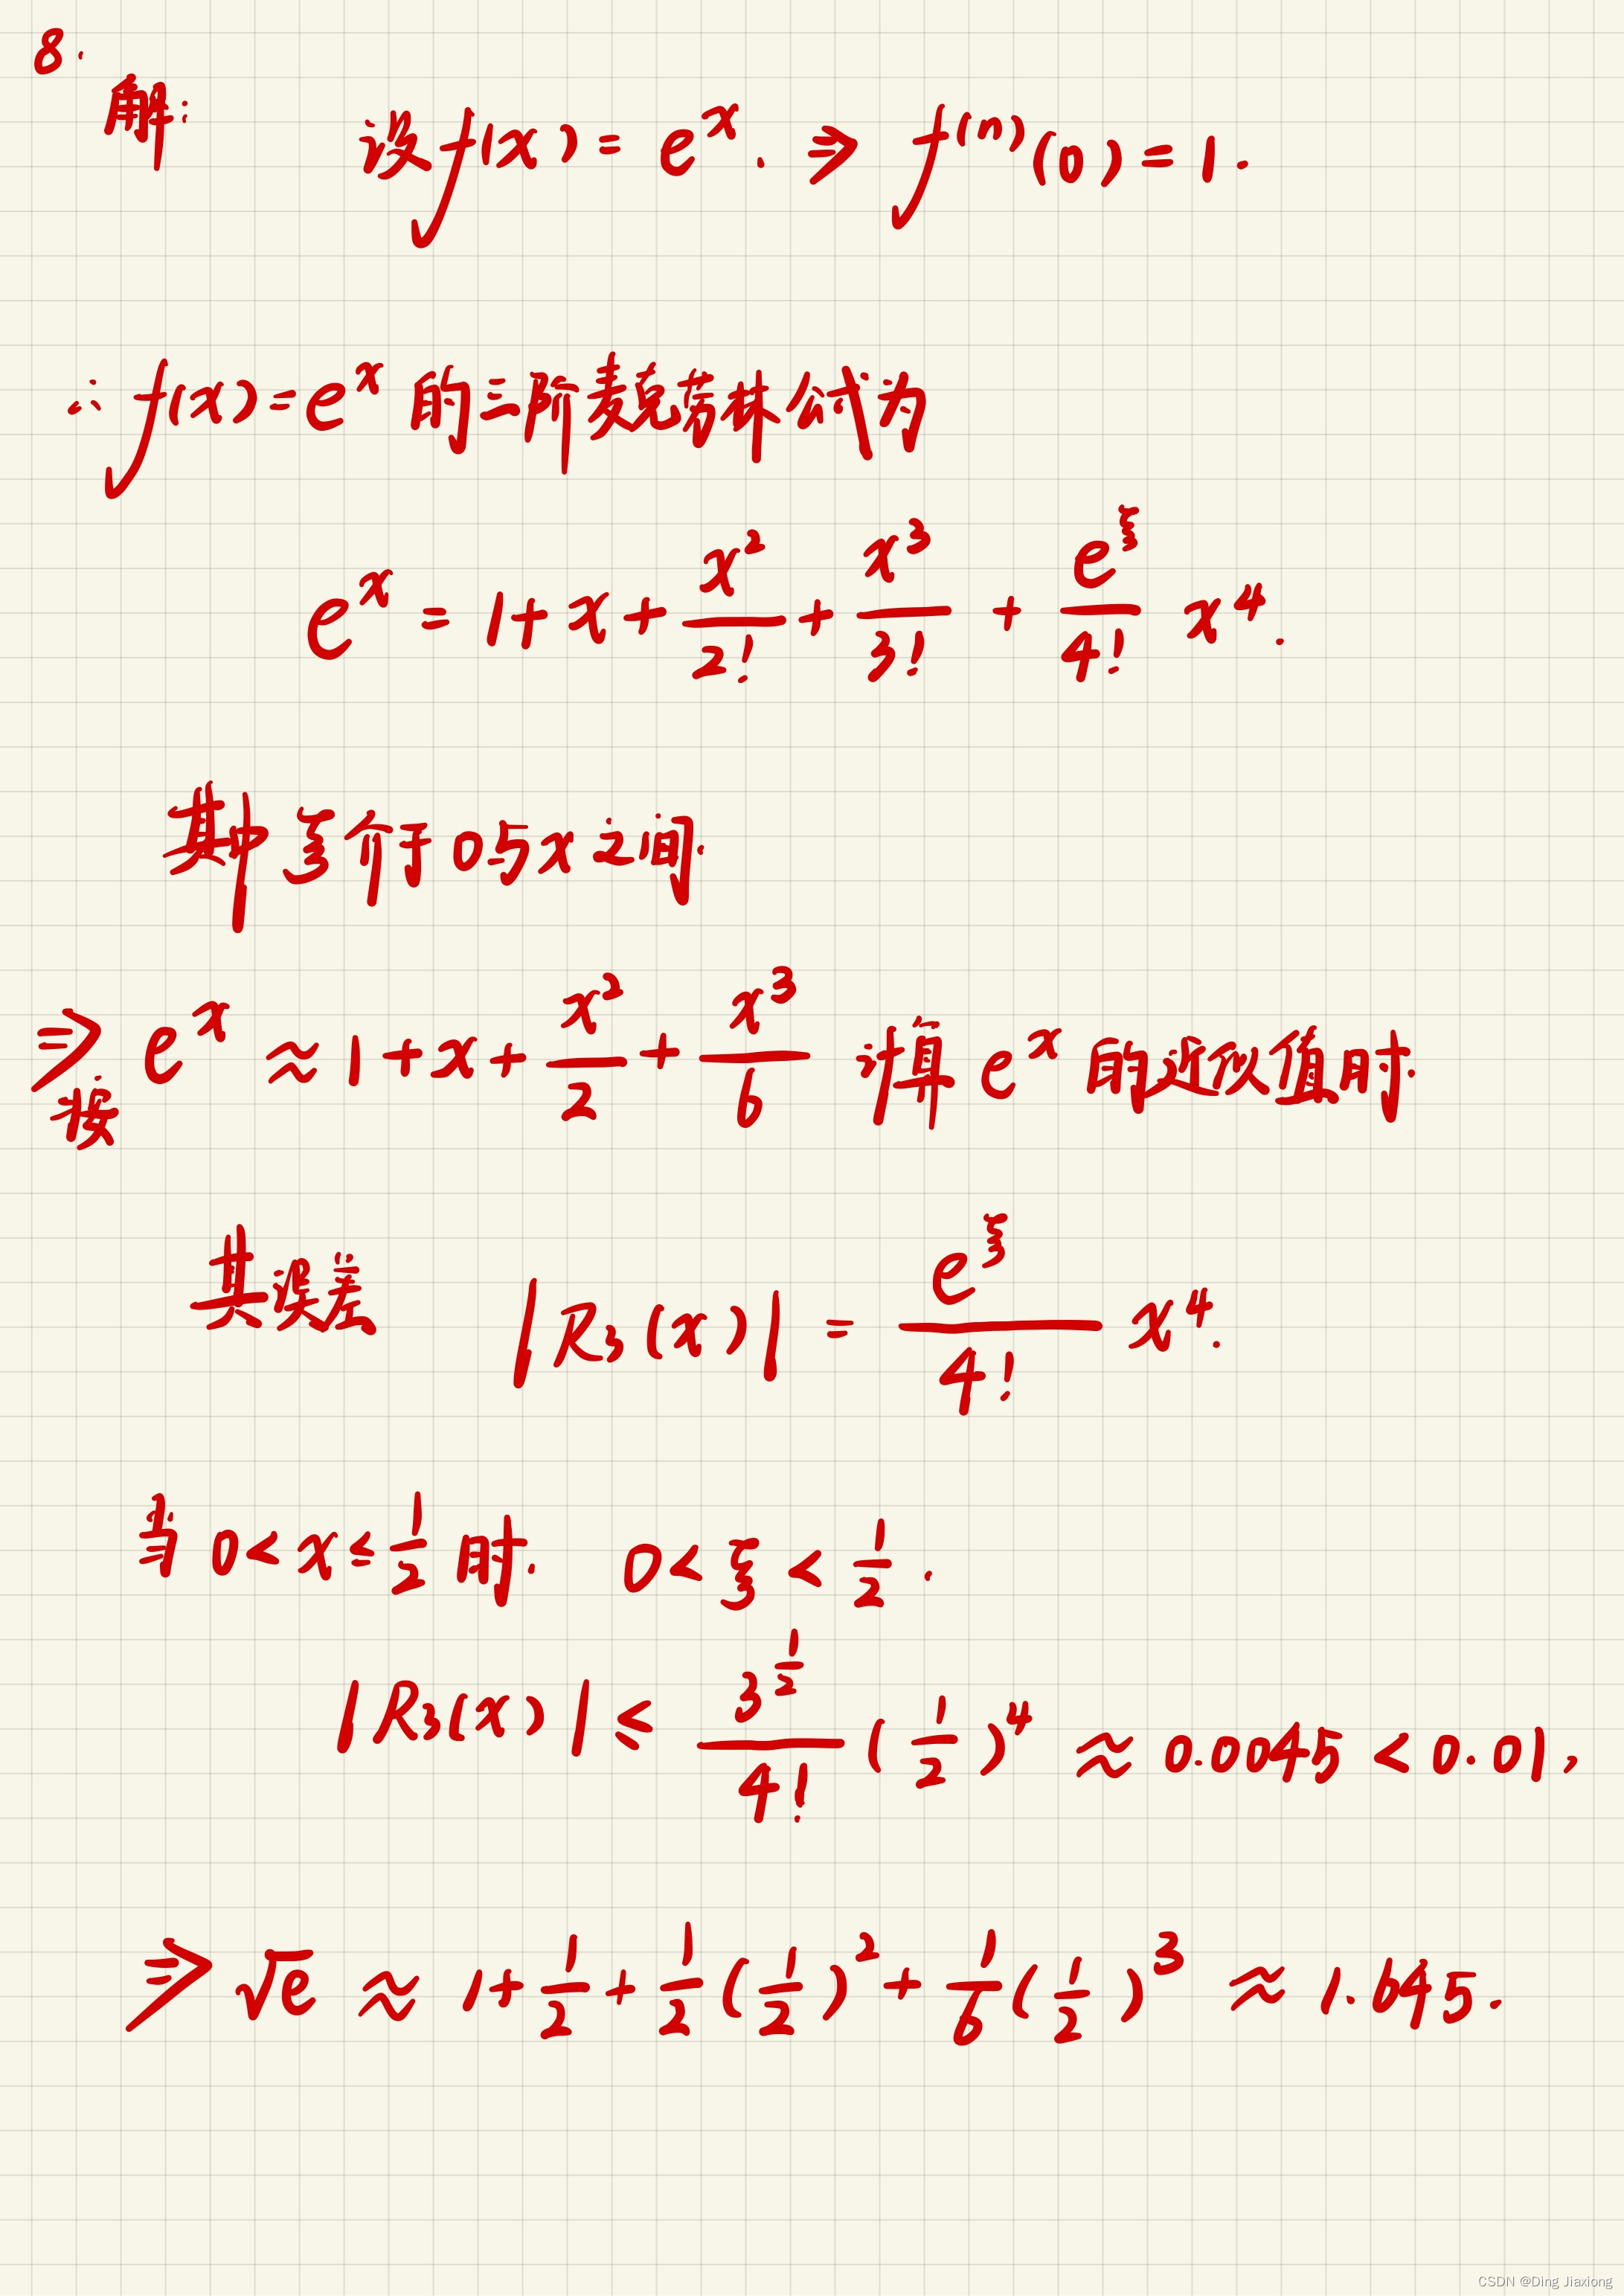 8.
解: 设 f(x) = e^x. ⇒ f^(n)(0) = 1.
∴ f(x) = e^x 的三阶麦克劳林公式为
e^x = 1 + x + x^2/2! + x^3/3! + e^ξ/4! x^4.
其中 ξ 介于 0 与 x 之间.
⇒ 按 e^x ≈ 1 + x + x^2/2 + x^3/6 计算 e^x 的近似值时.
其误差 |R3(x)| = e^ξ/4! x^4.
当 0 < x ≤ 1/2 时. 0 < ξ < 1/2.
|R3(x)| ≤ 3^(1/2)/4! (1/2)^4 ≈ 0.0045 < 0.01,
⇒ √e ≈ 1 + 1/2 + 1/2 (1/2)^2 + 1/6 (1/2)^3 ≈ 1.645.
CSDN @Ding Jiaxiong